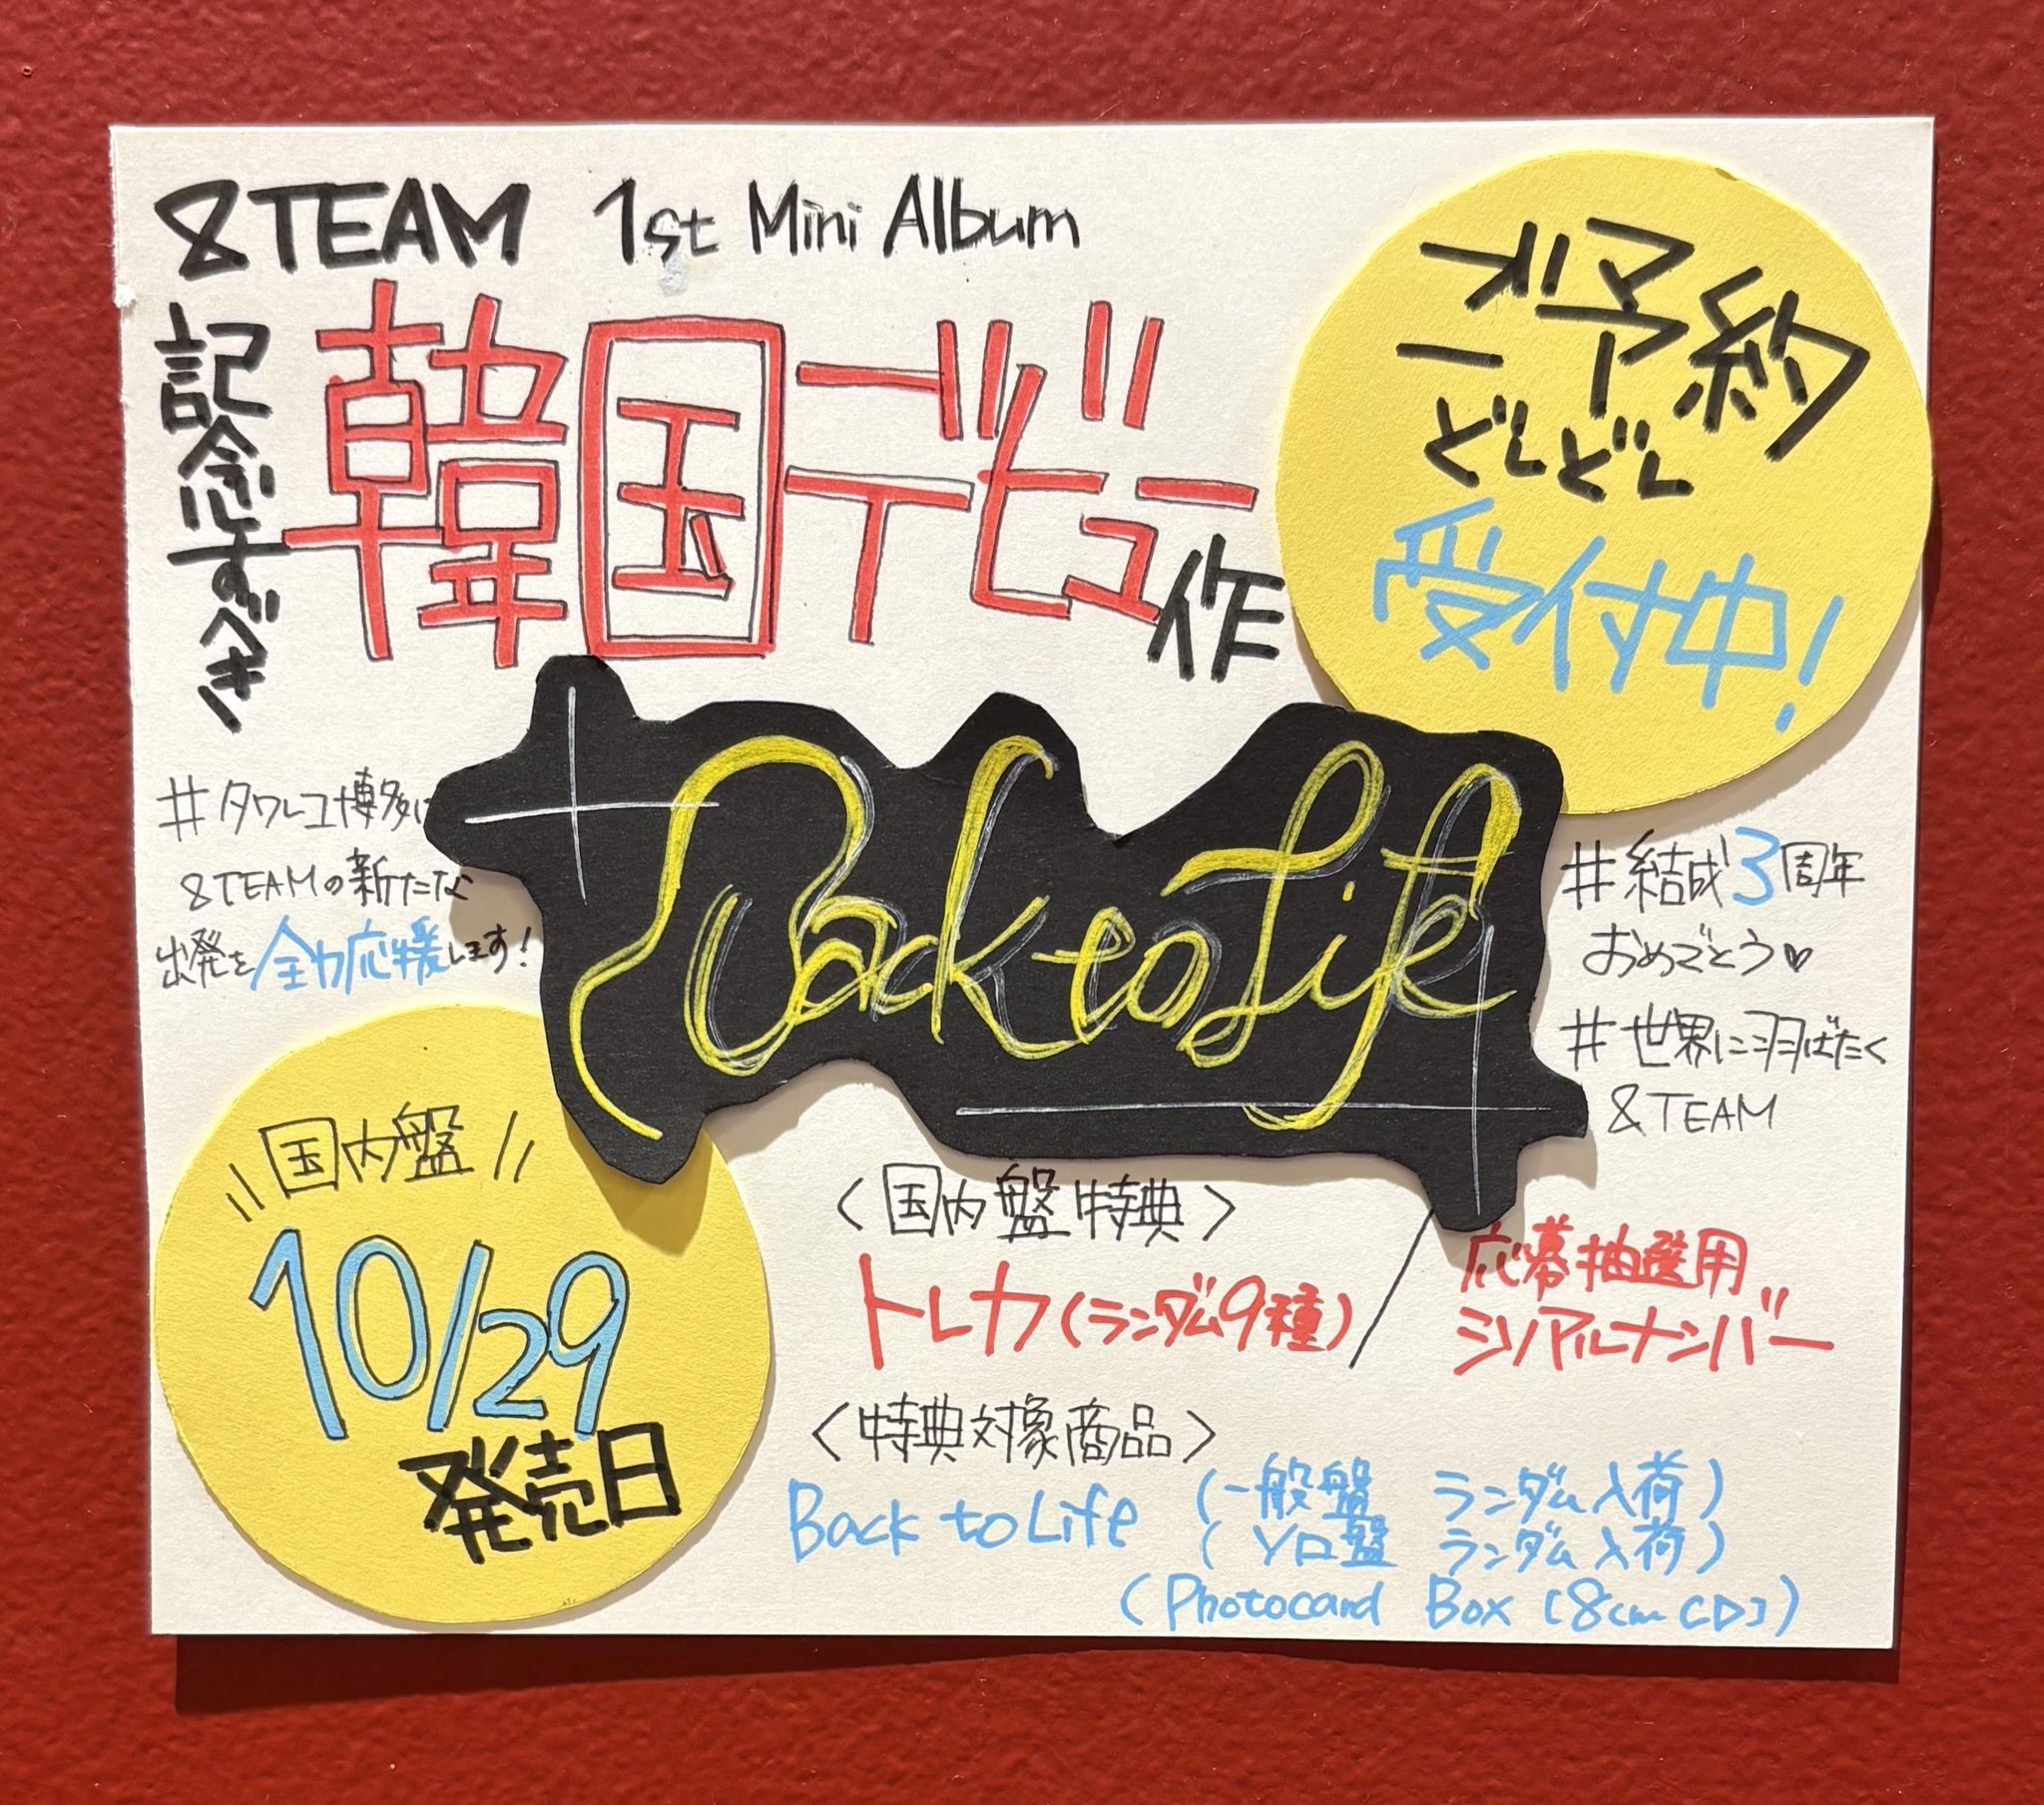 &TEAM 1st Mini Album
記念すべき
韓国デビュー作
ご予約
どしどし
受付中!
Back to Life
#タワレコ博多は
&TEAMの新たな
出発を全力応援します!
#結成3周年
おめでとう♡
#世界に羽ばたく
&TEAM
\\国内盤//
10/29
発売日
<国内盤特典>
トレカ(ランダム9種)/応募抽選用
シリアルナンバー
<特典対象商品>
Back to Life (一般盤 ランダム入荷)
(ソロ盤 ランダム入荷)
(Photocard Box [8cm CD])